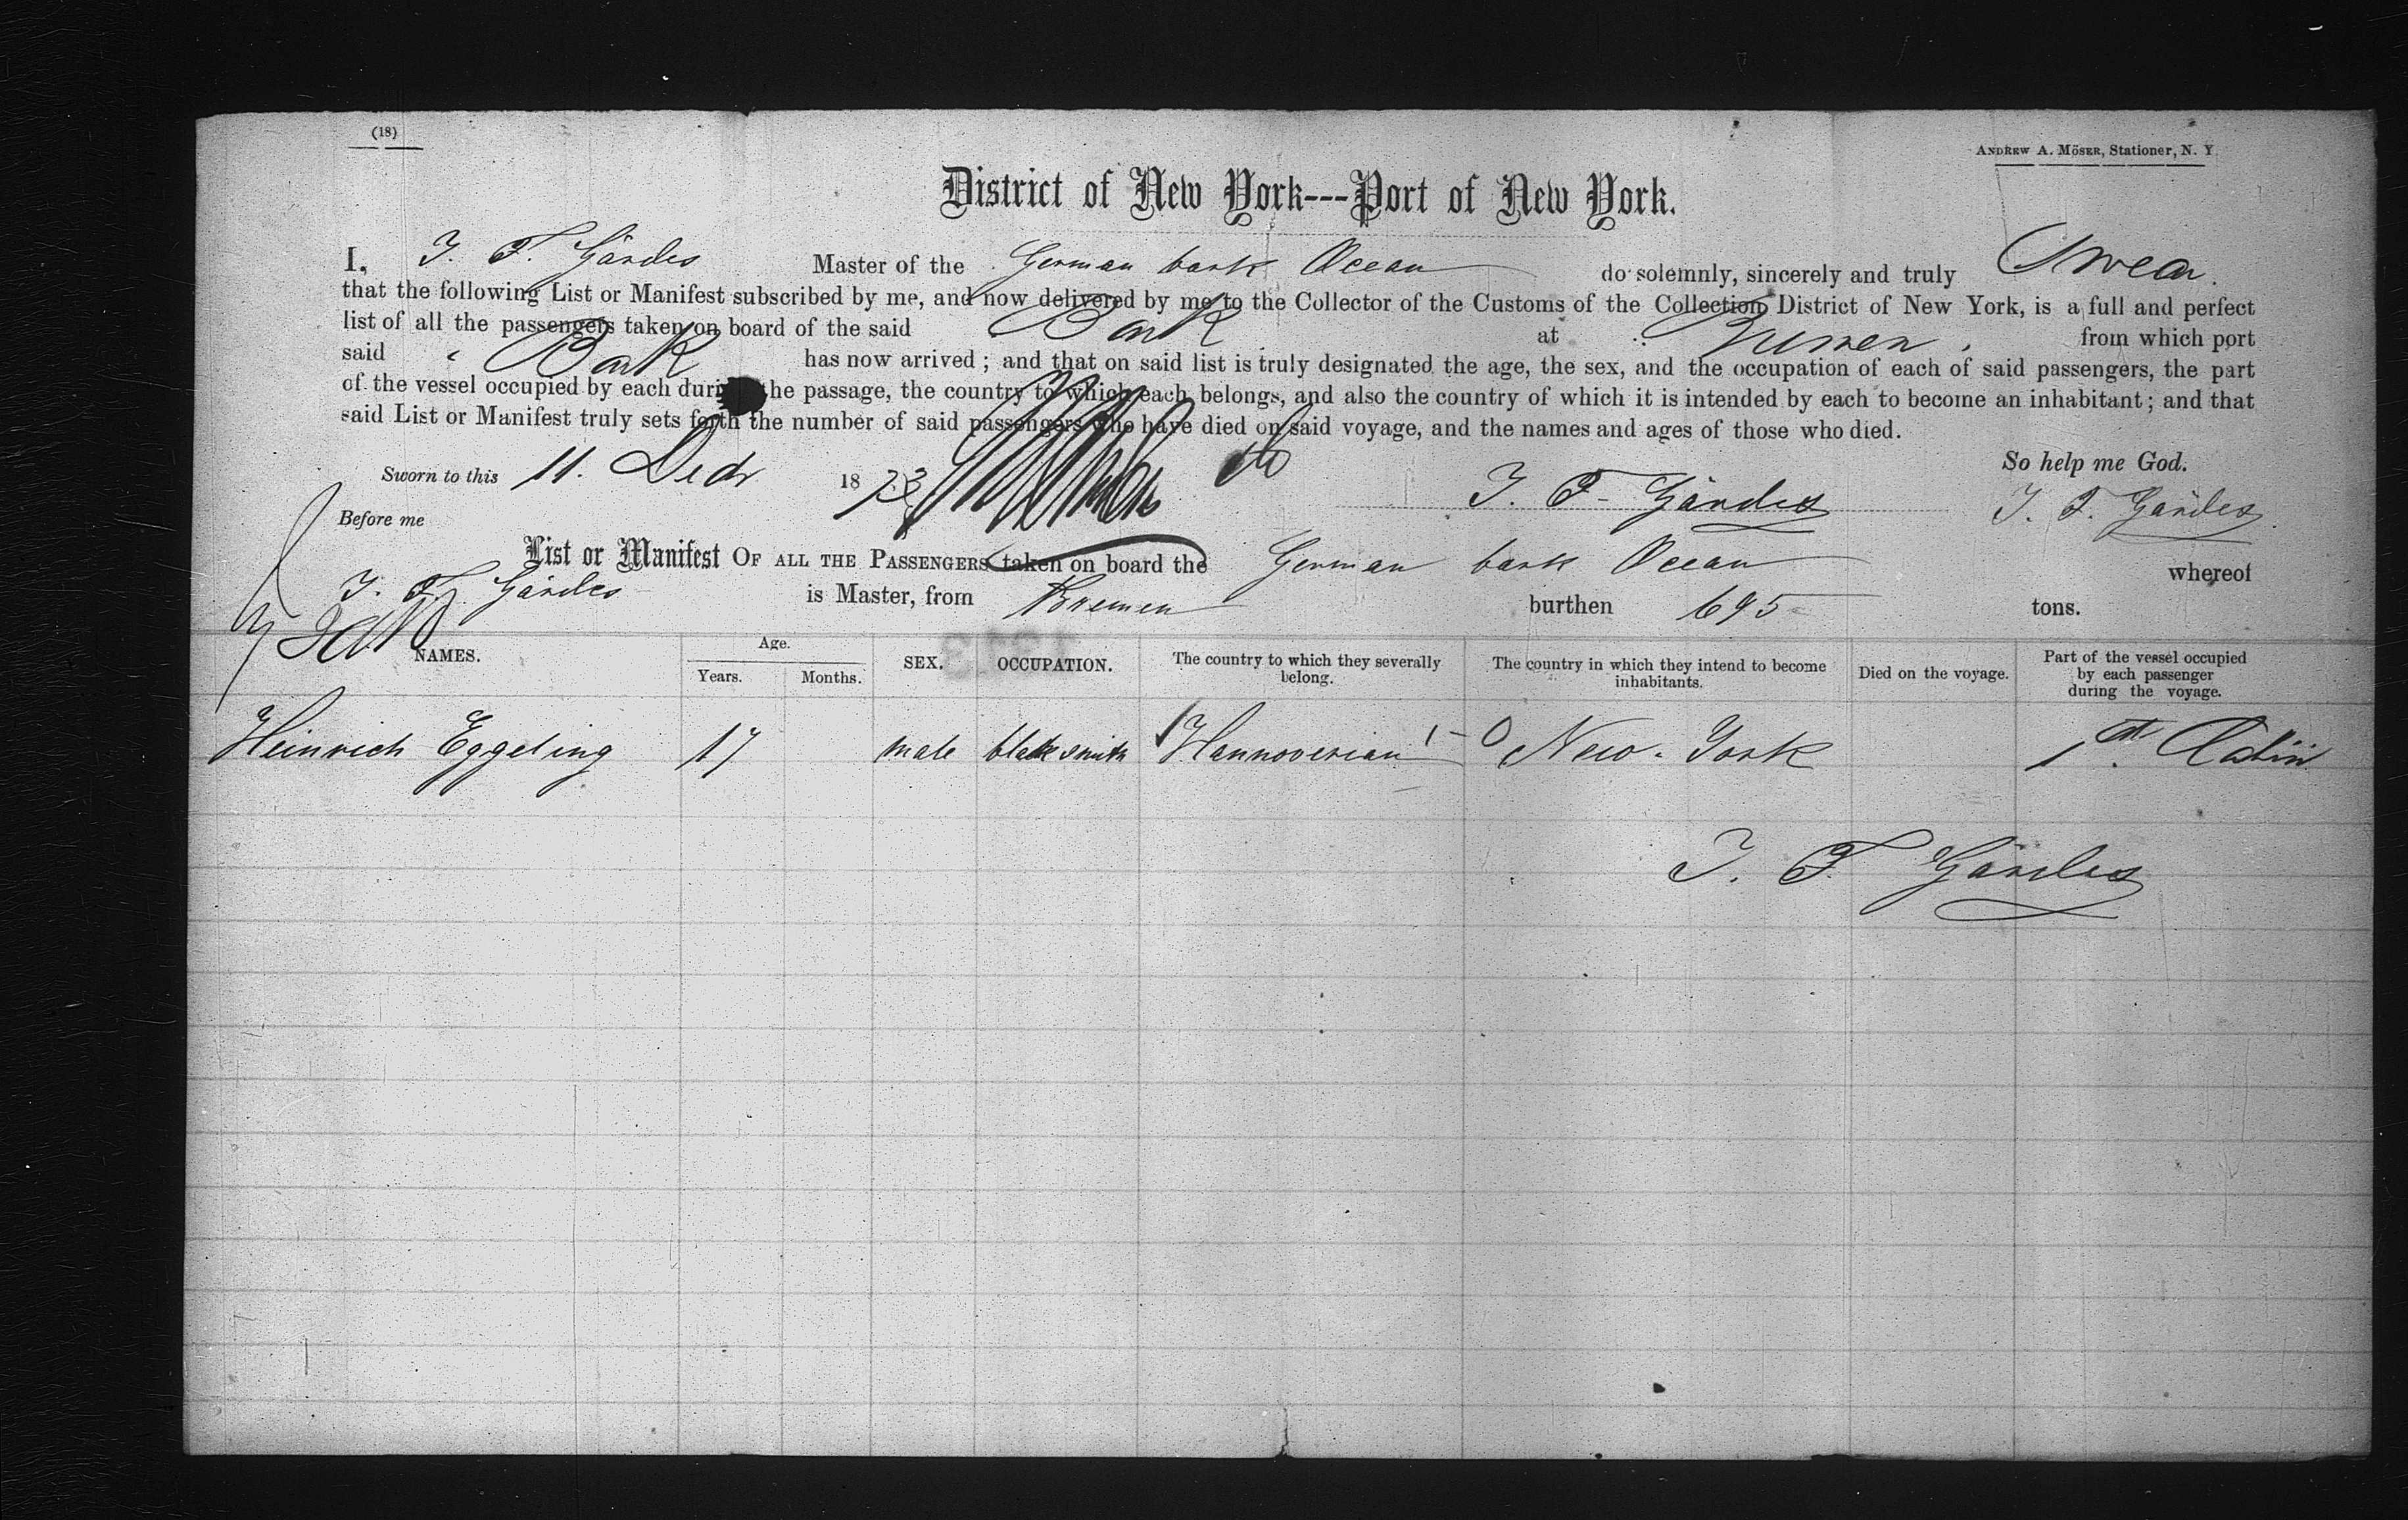 (18)
ANDREW A. MÖSER, Stationer, N. Y.
District of New York---Port of New York.
I, J. F. Gärdes Master of the German bark Ocean do solemnly, sincerely and truly Swear
that the following List or Manifest subscribed by me, and now delivered by me to the Collector of the Customs of the Collection District of New York, is a full and perfect
list of all the passengers taken on board of the said Bark at Bremen, from which port
said Bark has now arrived; and that on said list is truly designated the age, the sex, and the occupation of each of said passengers, the part
of the vessel occupied by each during the passage, the country to which each belongs, and also the country of which it is intended by each to become an inhabitant; and that
said List or Manifest truly sets forth the number of said passengers who have died on said voyage, and the names and ages of those who died.
So help me God.
Sworn to this 11. Decbr 1873 J. F. Gärdes J. F. Gärdes
Before me
List or Manifest OF ALL THE PASSENGERS taken on board the German bark Ocean whereof
J. F. Gärdes is Master, from Bremen burthen 695 tons.
NAMES. Age. Years. Months. SEX. OCCUPATION. The country to which they severally belong. The country in which they intend to become inhabitants. Died on the voyage. Part of the vessel occupied by each passenger during the voyage.
Heinrich Eggeling 17 male blacksmith Hannoverian 1 - 0 New-York 1st. Cabin
J. F. Gärdes